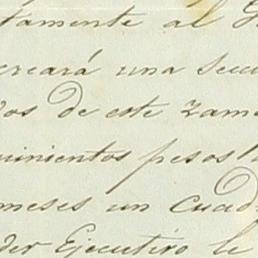 tamente al
creará una
dos de este ramo
quinientos pesos
meses un cuad
der Ejecutivo le